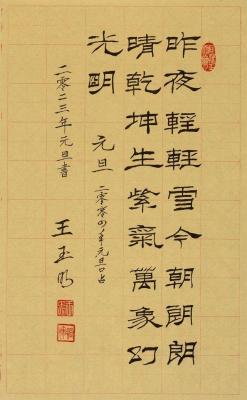 昨夜輕輕雪今朝朗朗
晴乾坤生紫氣萬象幻
光明
元旦 二零零四年元旦口占
二零二三年元旦書
王玉明